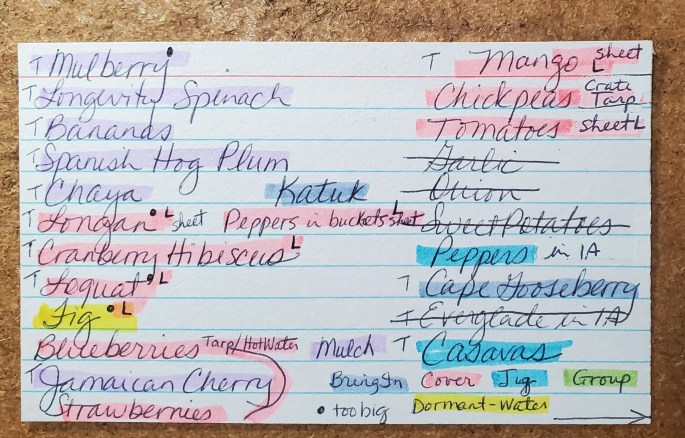 T Mulberry
T Longevity Spinach
T Bananas
T Spanish Hog Plum
T Chaya Katuk
T Longan L sheet Peppers in buckets L sheet
T Cranberry Hibiscus L
T Loquat L
Fig L
Blueberries Tarp/HotWater Mulch
T Jamaican Cherry
Strawberries
T Mango L sheet
Chickpeas Crate Tarp L
Tomatoes sheet L
Garlic
Onion
Sweet Potatoes
Peppers in 1A
T Cape Gooseberry
T Everglade in 1A
T Casavas
BringIn Cover Jug Group
• too big Dormant-Water